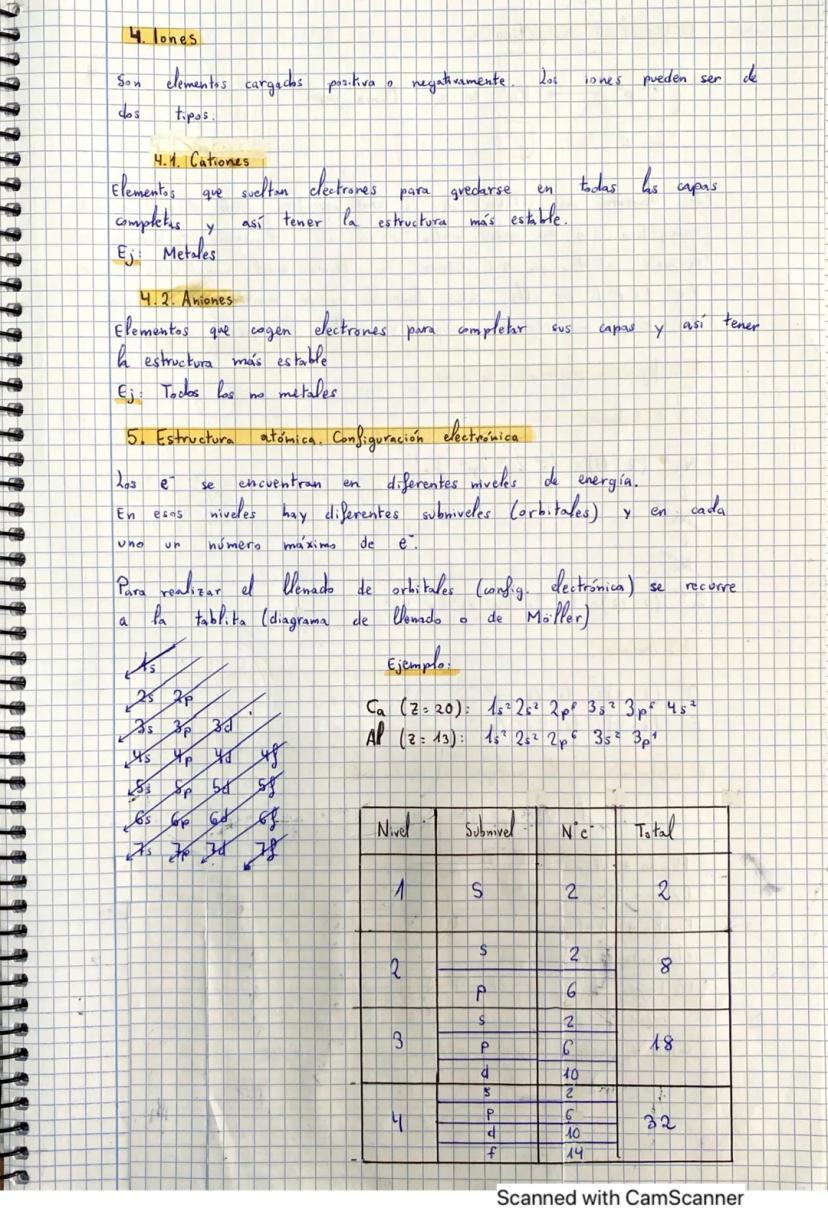 4. Iones
Son elementos cargados positiva o negativamente. Los iones pueden ser de
dos tipos:
4.1. Cationes
Elementos que sueltan electrones para quedarse en todas las capas
completas y así tener la estructura más estable.
Ej: Metales
4.2. Aniones
Elementos que cogen electrones para completar sus capas y así tener
la estructura más estable
Ej: Todos los no metales
5. Estructura atómica. Configuración electrónica
Los e⁻ se encuentran en diferentes niveles de energía.
En esos niveles hay diferentes subniveles (orbitales) y en cada
uno un número máximo de e⁻.
Para realizar el llenado de orbitales (config. electrónica) se recurre
a la tablita (diagrama de llenado o de Möller)
1s
2s 2p
3s 3p 3d
4s 4p 4d 4f
5s 5p 5d 5f
6s 6p 6d 6f
7s 7p 7d 7f
Ejemplo:
Ca (Z=20): 1s² 2s² 2p⁶ 3s² 3p⁶ 4s²
Al (Z=13): 1s² 2s² 2p⁶ 3s² 3p¹
Nivel Subnivel N°e⁻ Total
1 s 2 2
2 s 2 8
p 6
3 s 2 18
p 6
d 10
4 s 2 32
p 6
d 10
f 14
Scanned with CamScanner